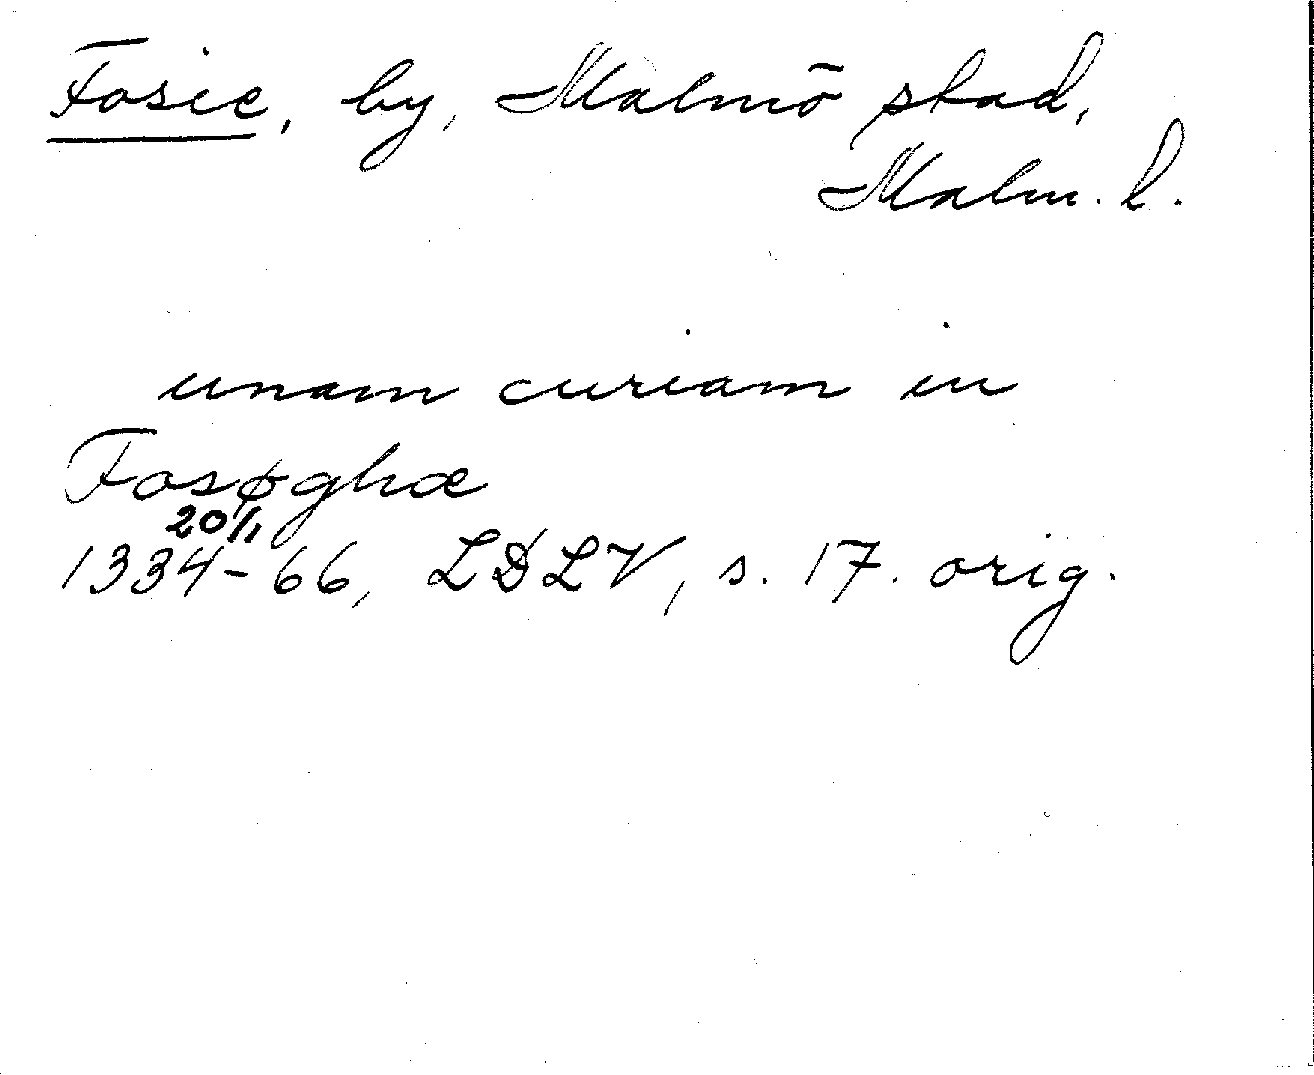 Fosie, by, Malmö stad,
Malm. l.
unam curiam in
Fosøghæ
20/1
1334-66, LDLV, s. 17. orig.